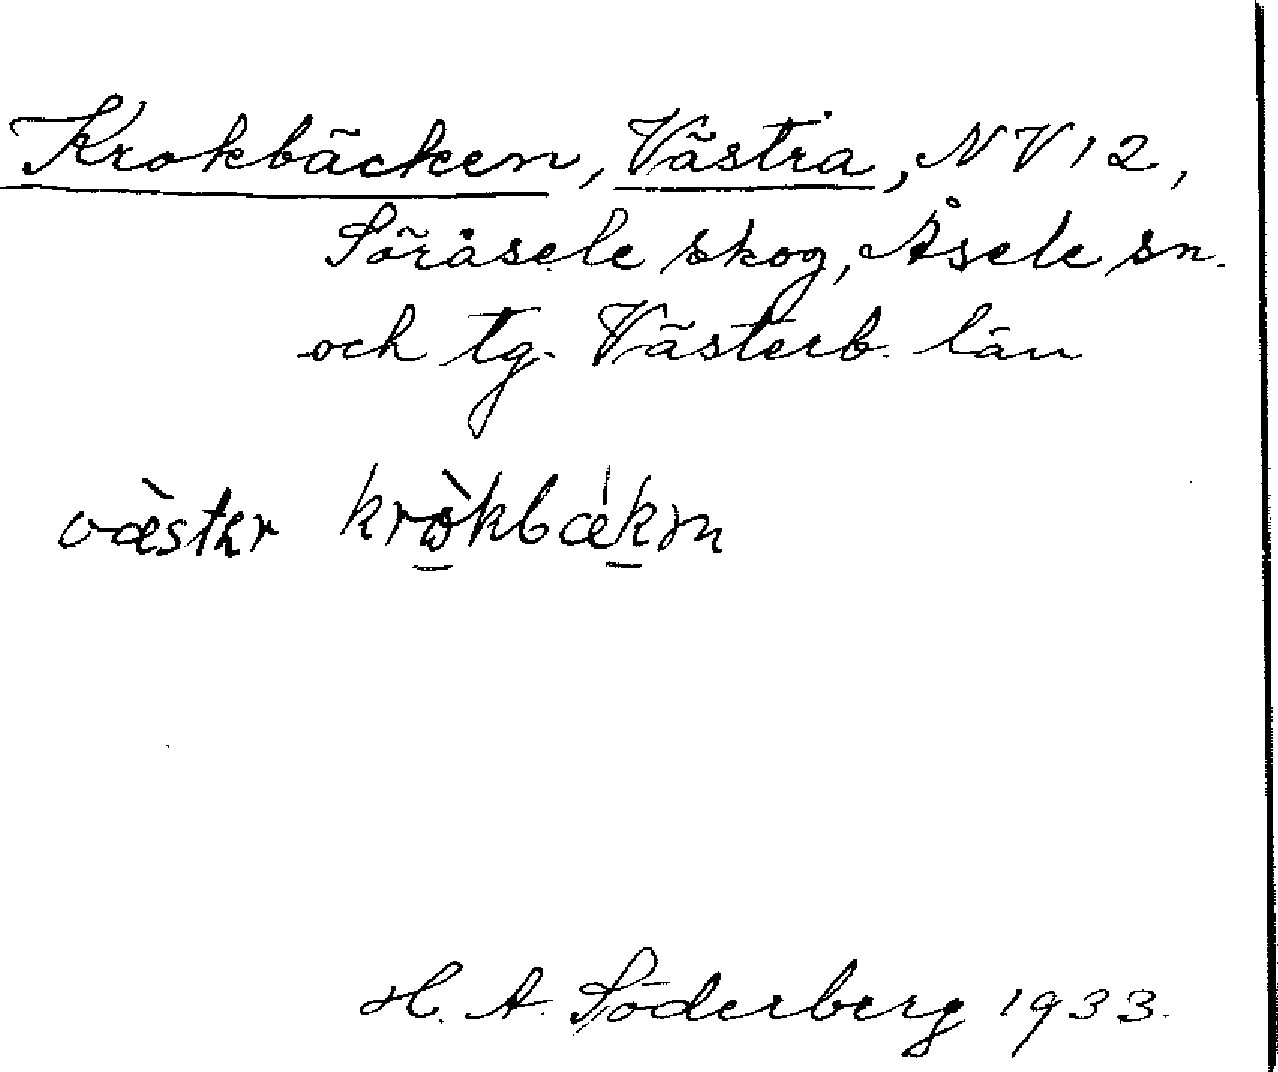 Krokbäcken, Västra, NV 12,
Söråsele skog, Åsele sn.
och tg. Västerb. län
væ̀stər krò̱kbæ̀ḵm
H. A. Söderberg 1933.